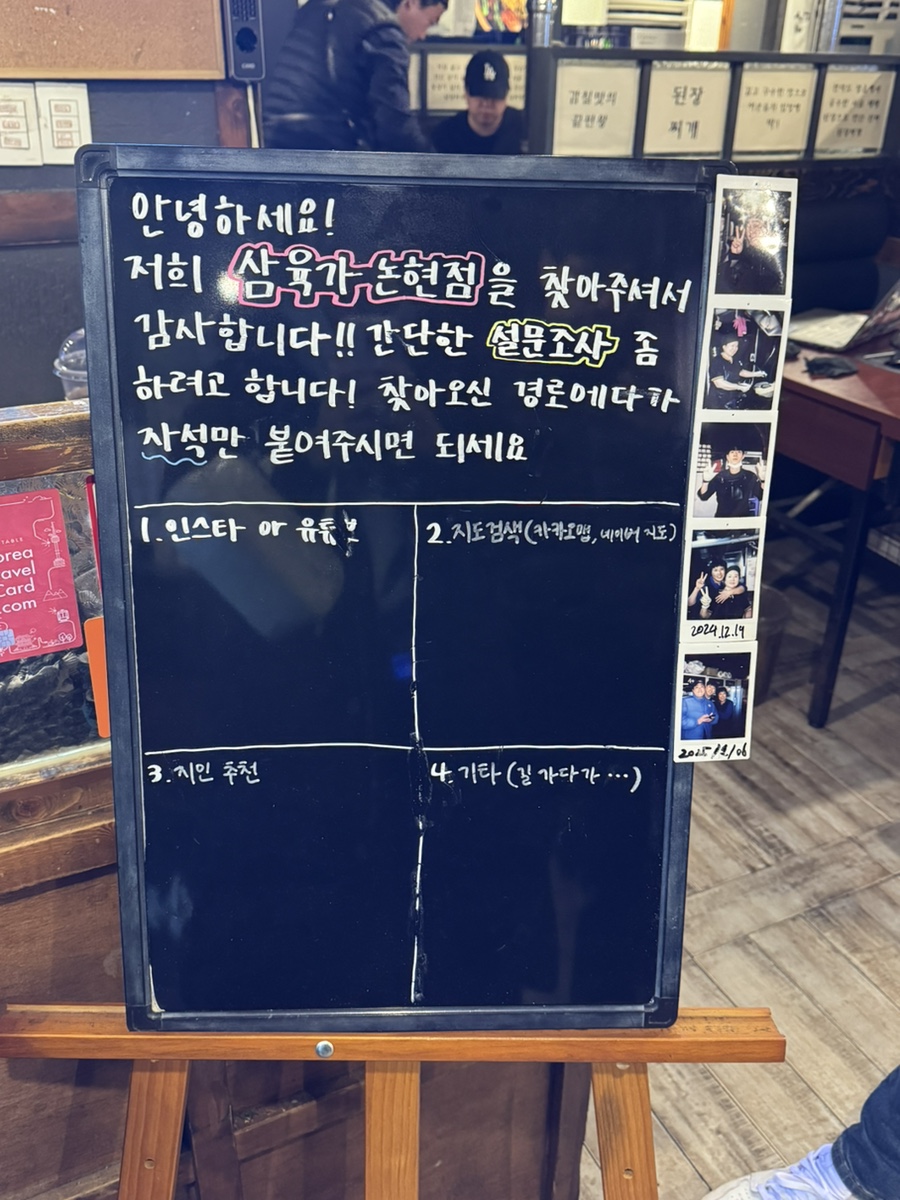 안녕하세요!
저희 삼육가 논현점을 찾아주셔서
감사합니다!! 간단한 설문조사 좀
하려고 합니다! 찾아오신 경로에다가
자석만 붙여주시면 되세요
1. 인스타 or 유튜브
2. 지도검색(카카오맵, 네이버 지도)
3. 지인 추천
4. 기타 (길 가다가 ···)
된장
찌개
LA
orea
avel
Card
.com
2024.12.14